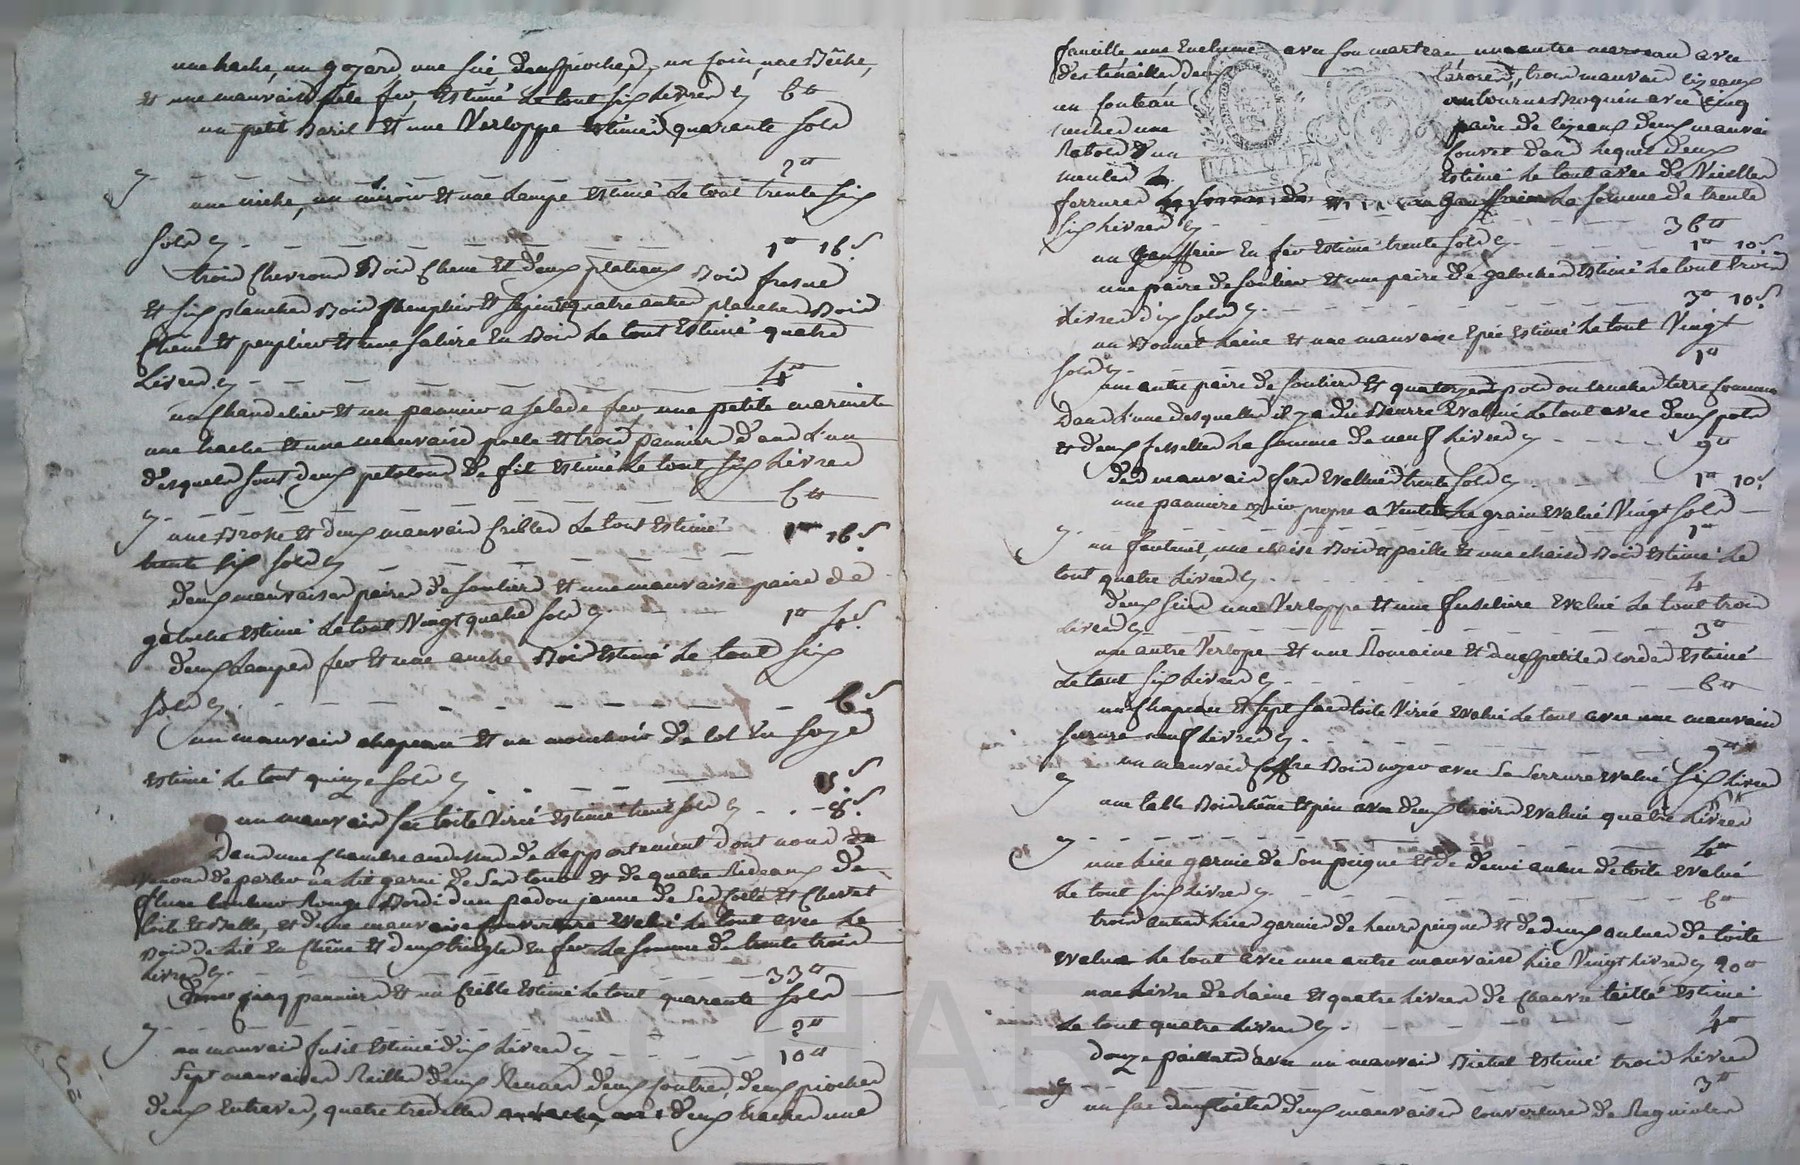 une hache, un goyard une scie, deux pioches, un soin, une Bêche,
et une mauvaise pele fer, Estimé le tout six Livres 6 ⁿ
un petit Baril et une Verloppe estimés quarante sols
2 ⁿ
une niche, un miroir et une Lampe estimé Le tout trente six
sols 1 ⁿ 16 s
trois Chevrons Bois Chene et deux plateaux Bois fresne
et six planches Bois peuplier et sapin et quatre autres planches Bois
Chêne et peuplier et une saliere En Bois Le tout Estimé quatre
Livres 4 ⁿ
un Chandelier et un pannier a salade fer une petite marmite
une hache et une mauvaise poele et trois panniers dans l'un
desquels sont deux pelotons de fil estimé Le tout six Livres
6 ⁿ
une Broße et deux mauvais Cribles Le tout Estimé
trente six sols 1 ⁿ 16 s
deux mauvaises paires de souliers et une mauvaise paire de
galoche estimé Le tout Vingt quatre sols 1 ⁿ 4 s
deux Lampes fer et une autre Bois Estimé Le tout six
sols 6 s
un mauvais chapeau et un mouchoir de Col En soye
estimé Le tout quinze sols
un mauvais sac toile Virié estimé huit sols 8 s
Dans une Chambre au dessus de Lappartement dont nous
venons de parler un Lit garni de Son tour et de quatre Rideaux de
couleur Rouge Bordé d'un padou jaune de Et Chevet
toile et Balle, et d'une mauvaise Couverture Evalué Le tout avec Le
Bois de Lit En Chêne et deux tringles En fer La somme de trente trois
Livres 33 ⁿ
cinq panniers et un Crible Estimé Le tout quarante sols
2 ⁿ
un mauvais fusil Estimé dix Livres 10 ⁿ
Sept mauvaises Reilles deux deux deux pioches
deux Entraves, quatre trevelles deux haches une
faucille une Enclume avec son marteau une autre marteau avec
des tenailles deux trois mauvais cizeaux
un couteau avec Cinq
paire de cizeaux deux mauvais
Rabots & un Lequel deux
meules Estimé Le tout avec de Vieilles
ferrures La Somme de trente
six Livres 36 ⁿ
un gauffrier En fer Estimé trente sols 1 ⁿ 10 s
une paire de soulier et une paire de galoches estimé Le tout trois
Livres dix sols 3 ⁿ 10 s
un Bonnet Laine et une mauvaise Epée Estimé Le tout Vingt
sols 1 ⁿ
une autre paire de souliers et quatorze pots ou cruches terre
Dans l'une desquelles il y a du Beurre Evalué Le tout avec deux pots
et deux fesselles La somme de neuf Livres 9 ⁿ
des mauvais fers Evallués trente sols 1 ⁿ 10 s
une panniere propre a Vente Le grain Evalué Vingt sols
1 ⁿ
un fauteuil une chaise Bois et paille et une chaise Bois Estimé Le
tout quatre Livres 4
deux scies une Verloppe et une fuseliere Evalué Le tout trois
Livres 3 ⁿ
une autre Verlope et une Romaine et deux petites cordes Estimé
Le tout six Livres 6 ⁿ
un Chapeau et sept sacs toile Virié Evalué Le tout avec une mauvaise
serrure neuf Livres 9 ⁿ
un mauvais Coffre Bois noyer avec Sa Serrure evalué six Livres
une table Bois chêne et pin avec deux tiroirs Evalué quatre Livres
4 ⁿ
une Lice garnie de Son peigne et de demi aulne de toile Evalué
Le tout six Livres 6 ⁿ
trois autres Lices garnies de Leurs peignes et de deux aulnes de toile
evalué Le tout avec une autre mauvaise Lice Vingt Livres 20 ⁿ
une Livre de Laine et quatre Livres de Chanvre taillé Estimé
Le tout quatre Livres 4 ⁿ
douze paillats avec un mauvais Bichet Estimé trois Livres
3 ⁿ
un sac deux toiles deux mauvaises couvertures de